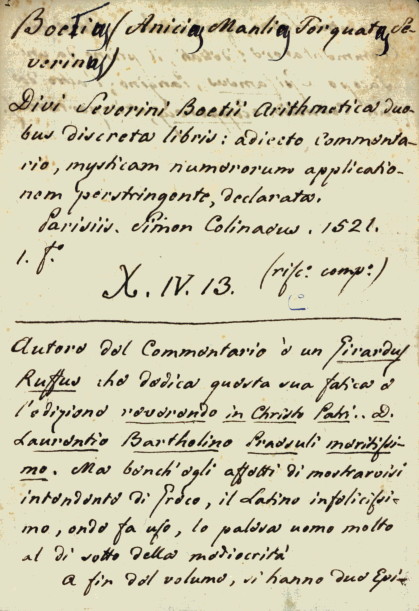 Boetius (Anicius Manlius Torquatus Se-
verinus)
Divi Severini Boetii Arithmetica duo-
bus discreta libris: adiecto commenta-
rio, mysticam numerorum applicatio-
nem perstringente, declarata.
Parisiis. Simon Colinaeus. 1521.
1. fº
X. IV. 13.
(risc.º comp.º)
Autore del Commentario è un Girardus
Ruffus che dedica questa sua fatica e
l'edizione reverendo in Christo Patri.. D.
Laurentio Bartholino Praesuli meritissi-
mo. Ma bench'egli affetti di mostrarvisi
intendente di Greco, il Latino infelicissi-
mo, onde fa uso, lo palesa uomo molto
al di sotto della mediocrità
A fin del volume, si hanno due Epi-